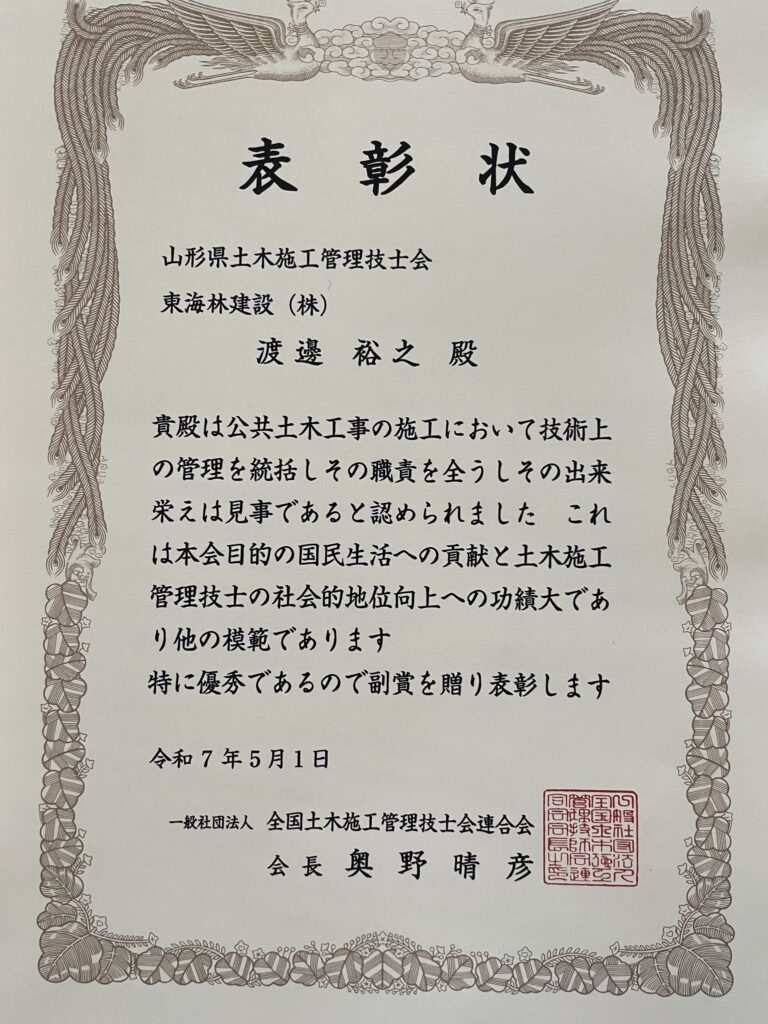 表彰状
山形県土木施工管理技士会
東海林建設（株）
渡邊 裕之 殿
貴殿は公共土木工事の施工において技術上
の管理を統括しその職責を全うしその出来
栄えは見事であると認められました　これ
は本会目的の国民生活への貢献と土木施工
管理技士の社会的地位向上への功績大であ
り他の模範であります
特に優秀であるので副賞を贈り表彰します
令和7年5月1日
一般社団法人 全国土木施工管理技士会連合会
会長 奥野晴彦